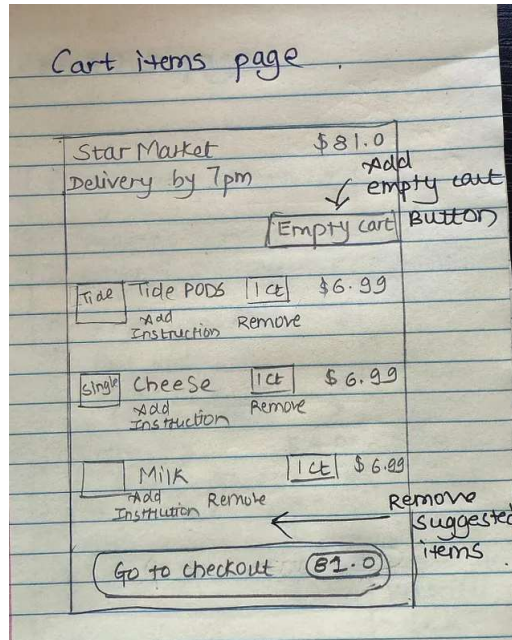 Cart items page .
Star Market $81.0
Delivery by 7pm
Add
empty cart
Button
Empty cart
Tide Tide PODS 1 ct $6.99
Add
Instruction Remove
Single Cheese 1 ct $6.99
Add
Instruction Remove
Milk 1 ct $6.99
Add
Instrution Remove
Remove
suggested
items
Go to checkout 81.0